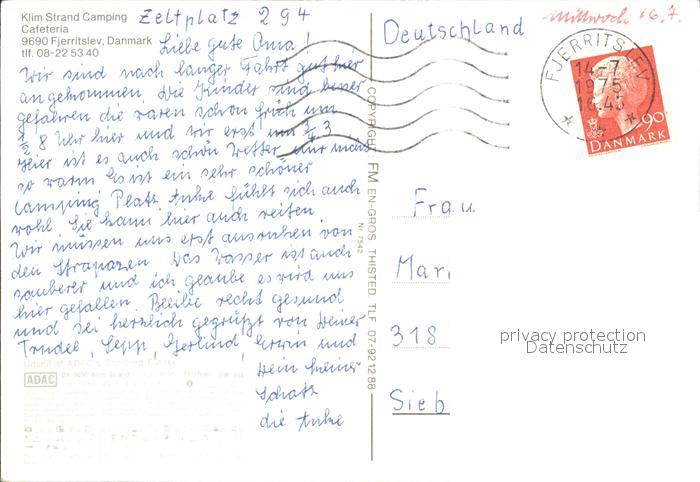 Klim Strand Camping
Cafeteria
9690 Fjerritslev, Danmark
tlf. 08-22 53 40
Zeltplatz 294
Liebe gute Oma!
Wir sind nach langer Fahrt gut hier
angekommen. Die Kinder sind besser
gefahren die waren schon früh um
½ 8 Uhr hier und wir erst um ½ 3
Hier ist es auch schön Wetter nur nicht
so warm Es ist ein sehr schöner
Camping Platz Anke fühlt sich auch
wohl. Sie kann hier auch reiten.
Wir müssen uns erst ausruhen von
den Strapazen Das Wasser ist auch
sauberer und ich glaube es wird uns
hier gefallen. Bleibe recht gesund
und sei herzlich gegrüßt von Heiner
Trudel, Sepp, Gerlind, Erwin und
Dein kleiner
Schatz
die Anke
ADAC
COPYRIGHT: FM EN-GROS THISTED TLF 07-92 12 88
Nr. 7542
Deutschland
Mittwoch 16.7.
FJERRITSLEV
14-7
1975
90
DANMARK
Frau
Mar
318
Sieb
privacy protection
Datenschutz